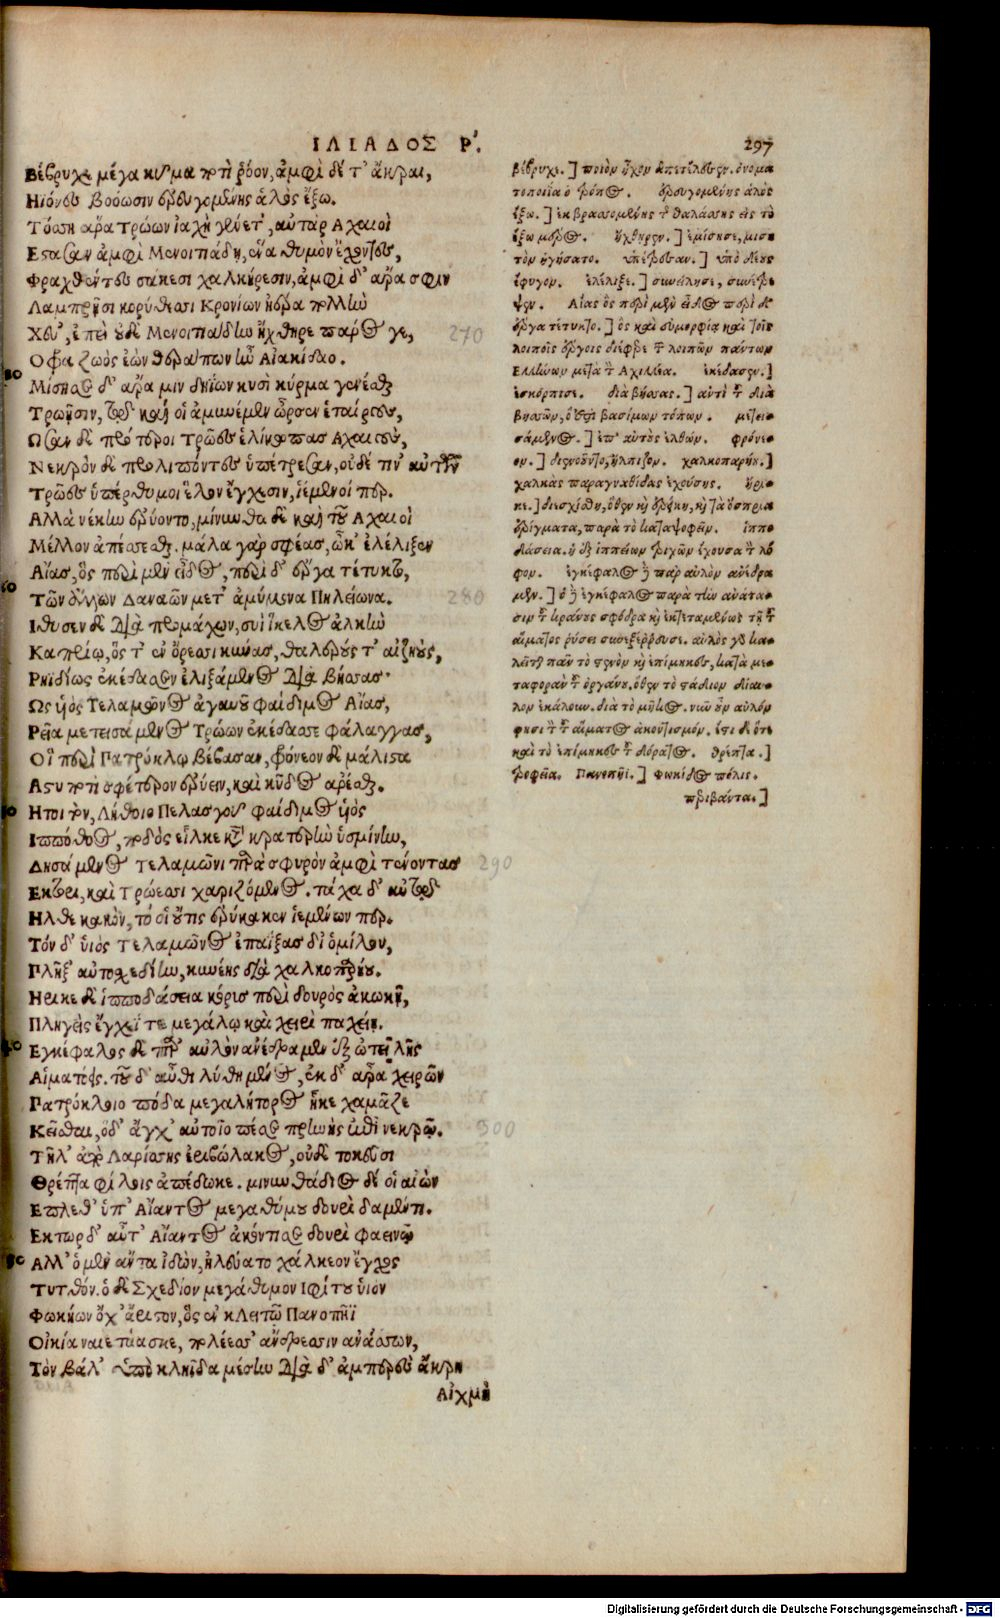 ΙΛΙΑΔΟΣ Ρ΄. 297
Βέβρυχε μέγα κῦμα ποτὶ ῥόον, ἀμφὶ δέ τ' ἄκραι,
Ηϊόνες βοόωσιν ἐρευγομένης ἁλὸς ἔξω.
Τόσση ἄρα Τρώων ἰαχῇ γένετ', αὐτὰρ Αχαιοὶ
Εστασαν ἀμφὶ Μενοιτιάδῃ, ἕνα θυμὸν ἔχοντες,
Φραχθέντες σάκεσι χαλκήρεσιν, ἀμφὶ δ' ἄρα σφιν
Λαμπρῇσι κορύθεσσι Κρονίων ἠέρα πολλὴν
Χεῦ', ἐπεὶ οὐδὲ Μενοιτιάδην ἤχθηρε πάρος γε, 270
Οφρα ζωὸς ἐὼν θεράπων ἦν Αἰακίδαο.
Μίσησεν δ' ἄρα μιν δηΐων κυσὶ κύρμα γενέσθαι
Τρωῇσιν, τῷ καὶ οἱ ἀμυνέμεν ὦρσεν ἑταίρους,
Ωσαν δὲ πρότεροι Τρῶες ἑλίκωπας Αχαιούς,
Νεκρὸν δὲ προλιπόντες ὑπέτρεσαν, οὐδέ τιν' αὐτῶν
Τρῶες ὑπέρθυμοι ἕλον ἔγχεσιν, ἱέμενοί περ.
Αλλὰ νέκυν ἐρύοντο, μίνυνθα δὲ καὶ τοῦ Αχαιοὶ
Μέλλον ἀπέσεσθαι. μάλα γάρ σφέας ὦκ' ἐλέλιξεν
Αἴας, ὃς περὶ μὲν εἶδος, περὶ δ' ἔργα τέτυκτο,
Τῶν ἄλλων Δαναῶν μετ' ἀμύμονα Πηλείωνα. 280
Ιθυσεν δὲ διὰ προμάχων, συῒ ἴκελος ἀλκὴν
Καπρίῳ, ὅς τ' ἐν ὄρεσσι κύνας, θαλερούς τ' αἰζηούς,
Ρηϊδίως ἐκέδασσεν ἑλιξάμενος διὰ βήσσας.
Ως υἱὸς Τελαμῶνος ἀγαυοῦ φαίδιμος Αἴας,
Ρεῖα μετεισάμενος Τρώων ἐκέδασσε φάλαγγας,
Οἳ περὶ Πατρόκλῳ βέβασαν, φρόνεον δὲ μάλιστα
Αστυ ποτὶ σφέτερον ἐρύειν, καὶ κῦδος ἀρέσθαι.
Ητοι τὸν, Λήθοιο Πελασγοῦ φαίδιμος υἱὸς
Ιππόθοος, ποδὸς εἷλκε κατὰ κρατερὴν ὑσμίνην,
Δησάμενος τελαμῶνι παρὰ σφυρὸν ἀμφὶ τένοντας 290
Εκτορι, καὶ Τρώεσσι χαριζόμενος. τάχα δ' αὐτῷ
Ηλθε κακὸν, τό οἱ οὔτις ἐρύκακεν ἱεμένων περ.
Τόν δ' υἱὸς Τελαμῶνος ἐπαΐξας δι' ὁμίλου,
Πλῆξ' αὐτοσχεδίην, κυνέης διὰ χαλκοπαρῄου.
Ηρικε δὲ ἱπποδάσεια κόρυς περὶ δουρὸς ἀκωκῇ,
Πληγεῖς ἔγχεΐ τε μεγάλῳ καὶ χειρὶ παχείῃ.
Εγκέφαλος δὲ παρ' αὐλὸν ἀνέδραμεν ἐξ ὠτειλῆς
Αἱματόεις. τοῦ δ' αὖθι λύθη μένος, ἐκ δ' ἄρα χειρῶν
Πατρόκλοιο πόδα μεγαλήτορος ἧκε χαμᾶζε
Κεῖσθαι, ὁ δ' ἄγχ' αὐτοῖο πέσεν πρηνὴς ἐπὶ νεκρῷ. 300
Τῆλ' ἀπὸ Λαρίσσης ἐριβώλακος, οὐδὲ τοκεῦσι
Θρέπτρα φίλοις ἀπέδωκε. μινυνθάδιος δέ οἱ αἰὼν
Επλεθ' ὑπ' Αἴαντος μεγαθύμου δουρὶ δαμέντι.
Εκτωρ δ' αὖτ' Αἴαντος ἀκόντισε δουρὶ φαεινῷ
Αλλ' ὁ μὲν ἄντα ἰδὼν, ἠλεύατο χάλκεον ἔγχος
Τυτθόν. ὁ δὲ Σχεδίον μεγάθυμον Ιφίτου υἱὸν
Φωκήων ὄχ' ἄριστον, ὃς ἐν κλειτῷ Πανοπῆϊ
Οἰκία ναιετάασκε, πολέεσσ' ἄνδρεσσιν ἀνάσσων,
Τὸν βάλ' ὑπὸ κληῖδα μέσην διὰ δ' ἀμπερὲς ἄκρη
Αἰχμὴ
βέβρυχε.] ποιὸν ἦχον ἀπετέλεσεν. ὀνομα
τοποιΐα ὁ τρόπος. ἐρευγομένης ἁλὸς
ἔξω.] ἐκβρασσομένης τῆς θαλάσσης εἰς τὸ
ἔξω μέρος. ἤχθηρεν.] ἐμίσησε, μισα
τὸν ἡγήσατο. ὑπέτρεσαν.] ὑπὸ δέους
ἔφυγον. ἐλέλιξε.] συνείλησε, συνέτρε
ψεν. Αἴας ὃς περὶ μὲν εἶδος περὶ δὲ
ἔργα τέτυκτο.] ὃς καὶ εὐμορφίᾳ καὶ τοῖς
λοιποῖς ἔργοις διέφερε τῶν λοιπῶν πάντων
Ελλήνων μετὰ τὸν Αχιλλέα. ἐκέδασεν.]
ἐσκόρπισε. διὰ βήσσας.] αὐτὶ τοῦ διὰ
βησσῶν, ὅ ἐστι βασίμων τόπων. μετεισάμενος.] ἐπ' αὐτοὺς ἐλθών. φρόνεον.] διενοοῦντο, ἤλπιζον. χαλκοπαρῄου.]
χαλκᾶς παραγναθίδας ἐχούσης. ἤρικε.] διεσχίσθη, ὅθεν καὶ ἐρείκη, καὶ τὰ ὄσπρια
ἐρίγματα, παρὰ τὸ καταψοφεῖν. ἱπποδάσεια. ἡ ἐξ ἱππείων τριχῶν ἔχουσα τὸν λόφον. ἐγκέφαλος δὲ παρ' αὐλὸν ἀνέδραμεν.] ὁ δὲ ἐγκέφαλος παρὰ τὴν ἀνάτασιν τοῦ κράνους σφόδρα καὶ ἐκτεταμένως τῇ τοῦ
αἵματος ῥύσει συνεξέρρευσε. αὐλὸς γὰρ καλεῖται πᾶν τὸ στενὸν καὶ ἐπίμηκες, κατὰ μεταφορὰν τοῦ ὀργάνου. ὅθεν τὸ στάδιον δίαυλον ἐκάλουν. διὰ τὸ μῆκος. νῦν οὖν αὐλόν
φησι τὸν τοῦ αἵματος ἀκοντισμόν. ἔστι δὲ ὅτε
καὶ τὸ ἐπίμηκες τοῦ δόρατος. θρέπτα.]
τροφεῖα. Πανοπῆϊ.] Φωκίδος πόλις.
περιβάντα.]
Digitalisierung gefördert durch die Deutsche Forschungsgemeinschaft - DFG